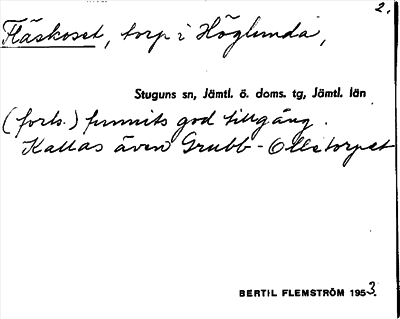 2.
Fläskoset, torp i Höglunda,
Stuguns sn, Jämtl. ö. doms. tg, Jämtl. län
(forts.) funnits god tillgång.
Kallas även Grubb-Ollstorpet
BERTIL FLEMSTRÖM 1953.